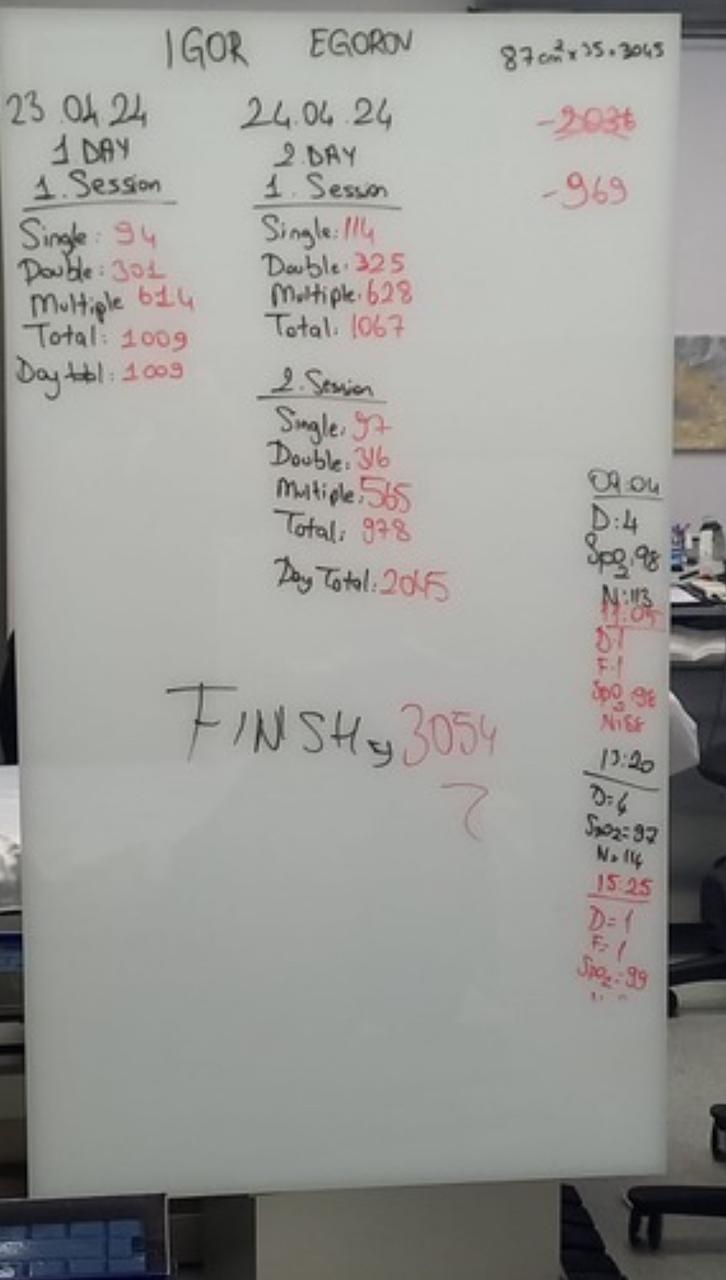 IGOR EGOROV
87cm² x 35 = 3045
-2036
-969
23.04.24
1 DAY
1. Session
Single: 94
Double: 301
Multiple 614
Total: 1009
Day total: 1009
24.04.24
2.DAY
1. Sesson
Single: 114
Double: 325
Multiple: 628
Total: 1067
2. Session
Single: 97
Double: 316
Multiple: 565
Total: 978
Day Total: 2045
FINSH 3054
09:04
D:4
SpO2:98
N:113
11:05
D:1
F:1
SpO2:98
13:20
SpO2=97
N=114
15:25
D=1
F=1
SpO2=99